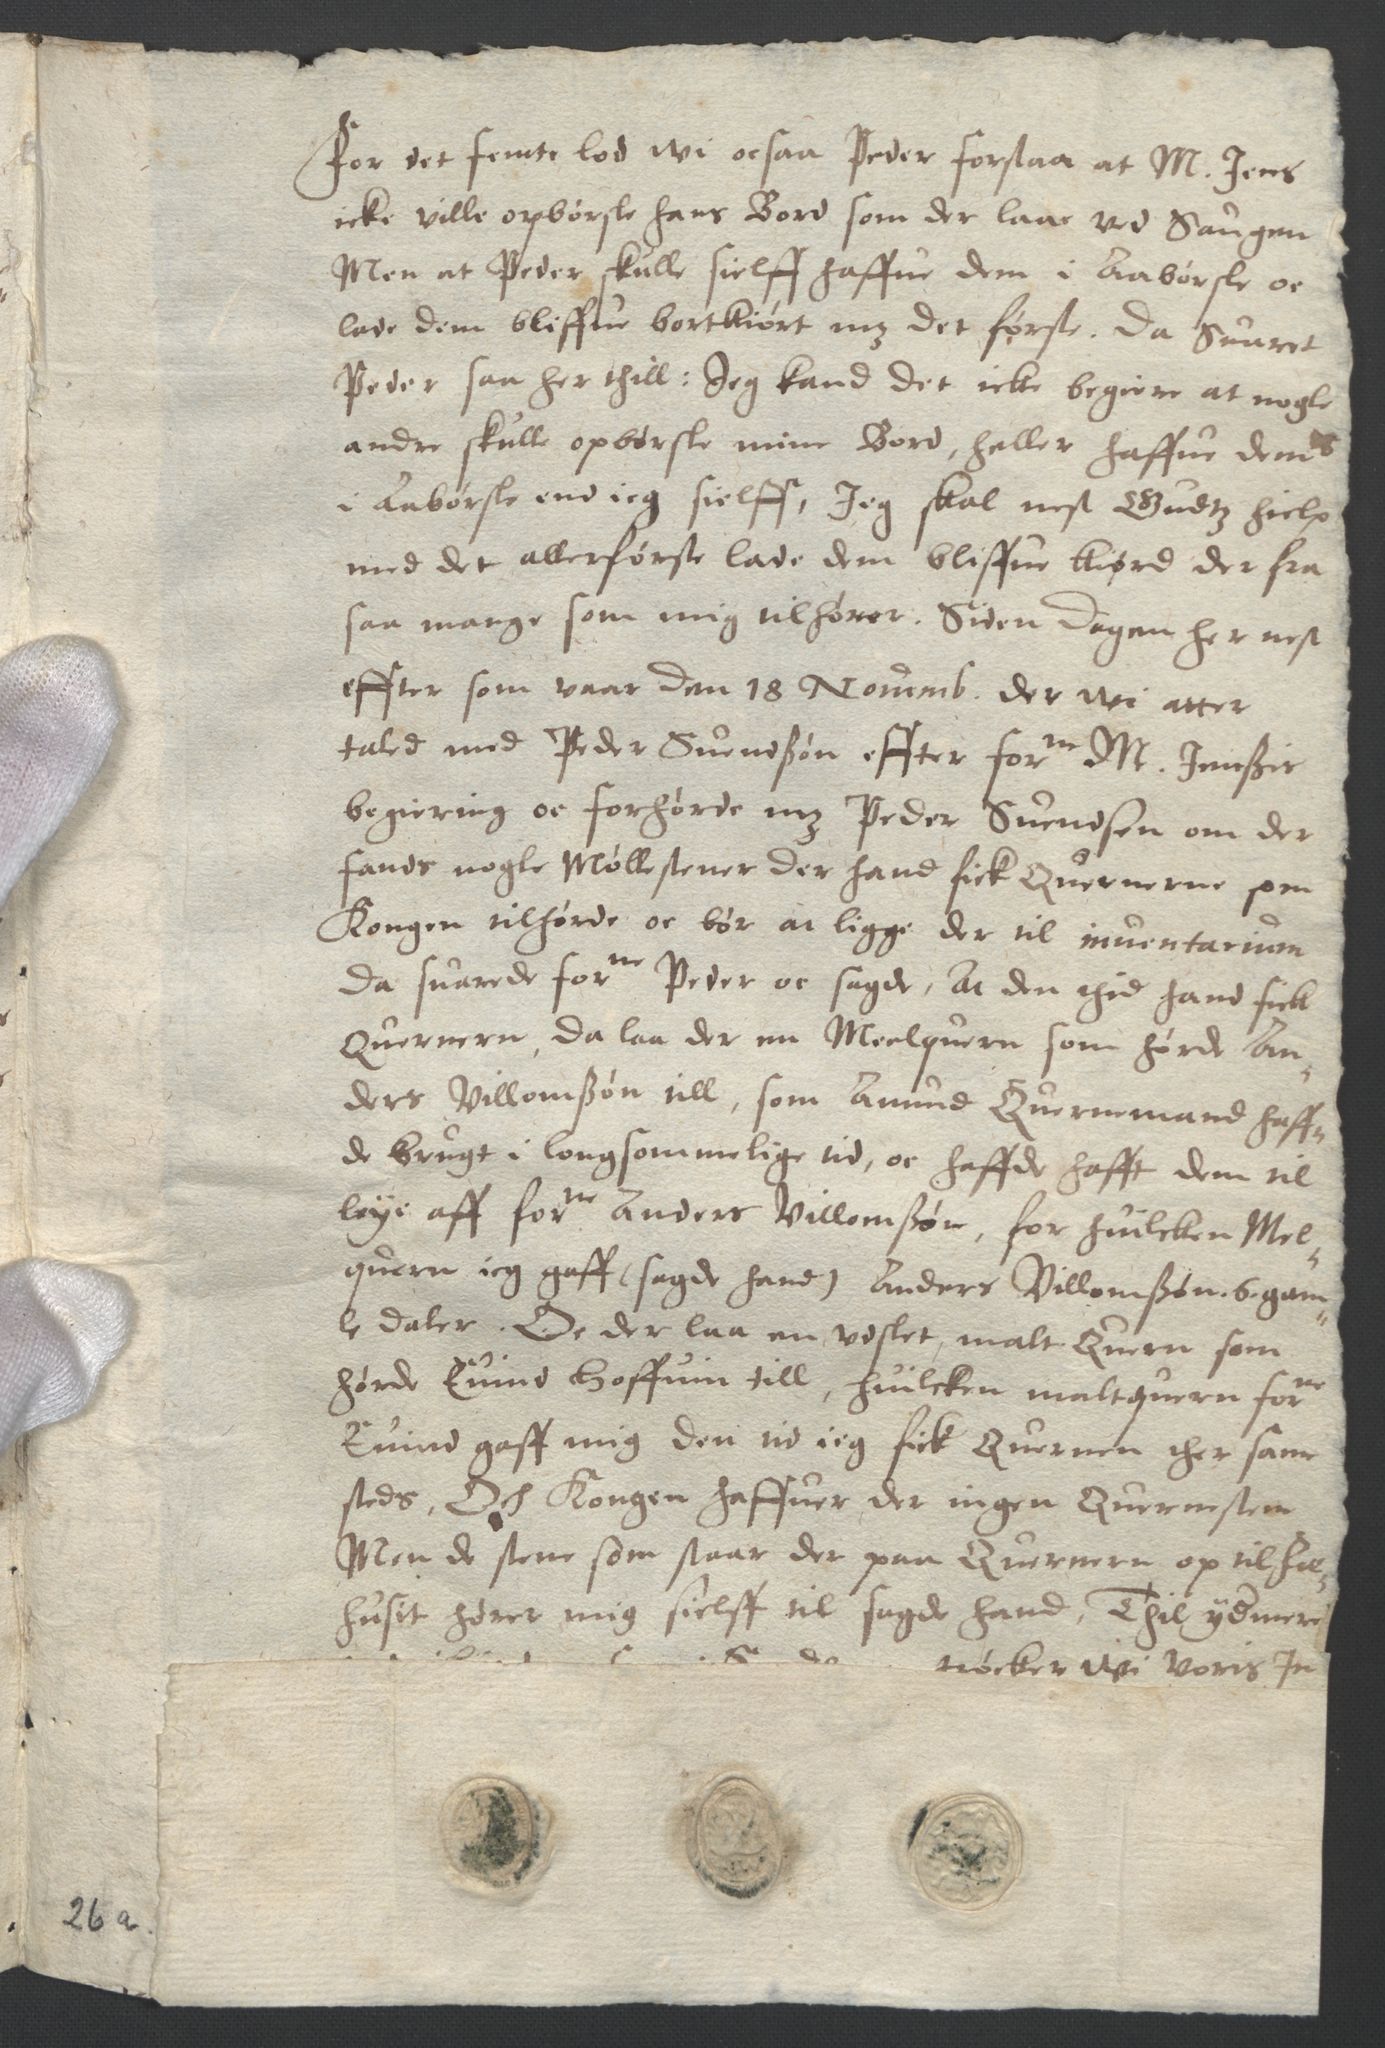 For det femte lod wi ocsaa Peder forstaa at M. Jens
icke ville opbørsle hans Bord som der laae ved Saugen
Men at Peder skulle sielff haffue dem i Aabørsle oc
lade dem bliffue bortkiørt mz det første. Da Suaret
Peder saa her thill: Jeg kand det icke begiere at nogle
andre skulle opbørsle mine Bord, heller haffue dem
i Aabørsle end ieg sielff, Jeg skal nest Gudtz hielp
med det allerførste lade dem bliffue kiørd der fra
saa mange som mig tilhører. Siden Dagen her nest
effter som vaar den 18 Nouemb. der wi atter
taled med Peder Suendßøn effter forne M. Jenßis
begiering oc forhørde mz Peder Suendsen om der
fands nogle Møllestener der hand fick Quernerne som
Kongen tilhørde oc bør at ligge der til inuentarium
Da suarede forne Peder oc sagde, At den thid hand fick
Quernern, da laa der en Meelquern som hørde An„
ders Villomßøn till, som Amund Quernemand haff„
de brugt i longsommelige tid, oc haffde hafft dem til
leye aff forne Anders Villomßøn, for huilcken Mel„
quern ieg gaff (sagde hand) Anders Villomßøn 6 gam„
le daler. Oc der laa en vdslet malt Quern som
hørde Euind Hoffuin till, huilcken maltquern forne
Euind gaff mig den tid ieg fick Quernen ther samme
steds, Och Kongen haffuer der ingen Quernesten
Men de stene som staar der paa Quernern op til
husit hører mig sielff til sagde hand, Thil ydmere
trøcker wi voris In
26 a.